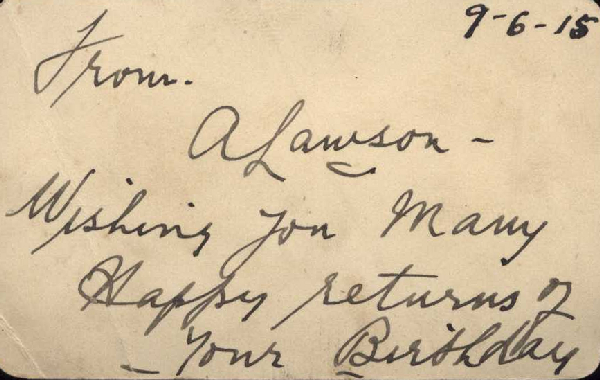 9-6-15
From.
A Lawson-
Wishing you Many
Happy returns of
Your Birthday